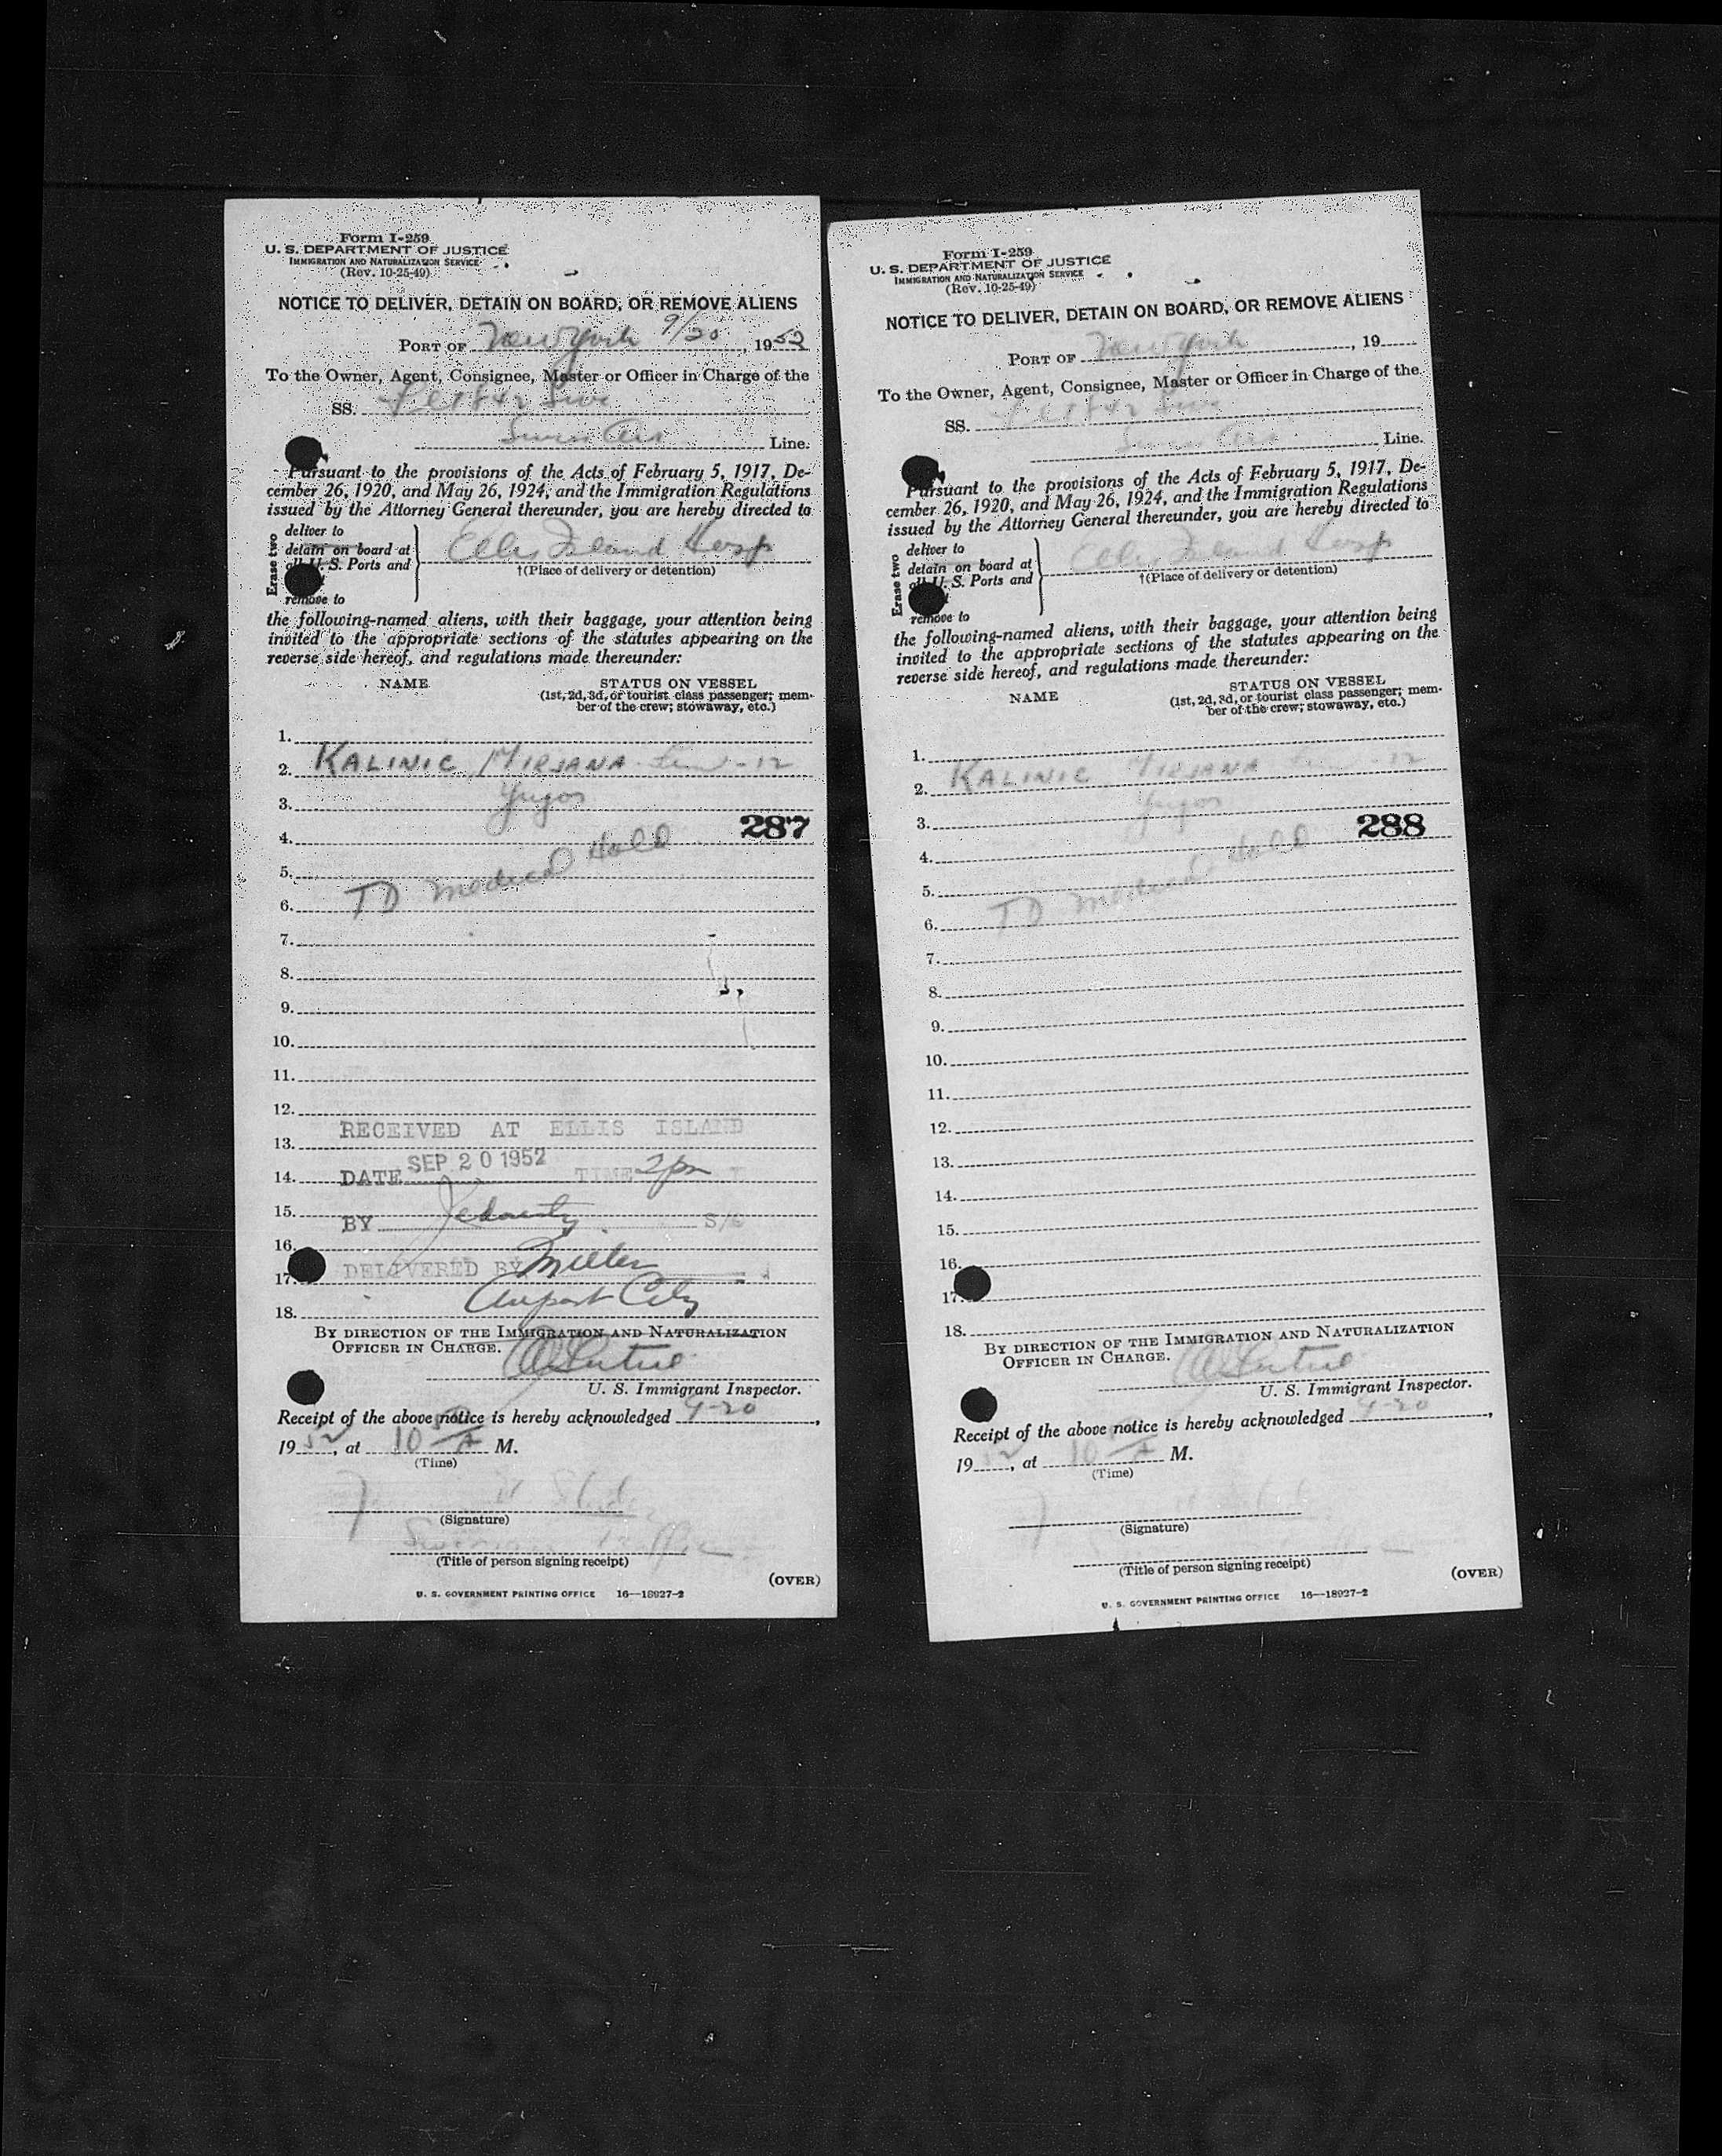 Form I-259
U. S. DEPARTMENT OF JUSTICE
IMMIGRATION AND NATURALIZATION SERVICE
(Rev. 10-25-49)
NOTICE TO DELIVER, DETAIN ON BOARD, OR REMOVE ALIENS
PORT OF New York 9/20, 1952
To the Owner, Agent, Consignee, Master or Officer in Charge of the
SS.
Swiss Air Line.
Pursuant to the provisions of the Acts of February 5, 1917, De-
cember 26, 1920, and May 26, 1924, and the Immigration Regulations
issued by the Attorney General thereunder, you are hereby directed to
Erase two
deliver to
detain on board at
all U. S. Ports and
remove to
Ellis Island Hosp
†(Place of delivery or detention)
the following-named aliens, with their baggage, your attention being
invited to the appropriate sections of the statutes appearing on the
reverse side hereof, and regulations made thereunder:
NAME STATUS ON VESSEL
(1st, 2d, 3d, or tourist class passenger; mem-
ber of the crew; stowaway, etc.)
1.
2. KALINIC MIRJANA - 12
3. Yugos
4. 287
5. TD Medical Hold
6.
7.
8.
9.
10.
11.
12.
RECEIVED AT ELLIS ISLAND
13.
14. DATE SEP 20 1952 TIME 2 pm
15.
BY S/
16.
17. DELIVERED BY Miller
18. Airport City
BY DIRECTION OF THE IMMIGRATION AND NATURALIZATION
OFFICER IN CHARGE.
U. S. Immigrant Inspector.
Receipt of the above notice is hereby acknowledged 9-20,
1952, at 10 A M.
(Time)
(Signature)
(Title of person signing receipt)
(OVER)
U. S. GOVERNMENT PRINTING OFFICE 16—18927-2
Form I-259
U. S. DEPARTMENT OF JUSTICE
IMMIGRATION AND NATURALIZATION SERVICE
(Rev. 10-25-49)
NOTICE TO DELIVER, DETAIN ON BOARD, OR REMOVE ALIENS
PORT OF New York, 19
To the Owner, Agent, Consignee, Master or Officer in Charge of the
SS.
Swiss Air Line.
Pursuant to the provisions of the Acts of February 5, 1917, De-
cember 26, 1920, and May 26, 1924, and the Immigration Regulations
issued by the Attorney General thereunder, you are hereby directed to
Erase two
deliver to
detain on board at
all U. S. Ports and
remove to
Ellis Island Hosp
†(Place of delivery or detention)
the following-named aliens, with their baggage, your attention being
invited to the appropriate sections of the statutes appearing on the
reverse side hereof, and regulations made thereunder:
NAME STATUS ON VESSEL
(1st, 2d, 3d, or tourist class passenger; mem-
ber of the crew; stowaway, etc.)
1.
2. KALINIC MIRJANA - 12
3. Yugos
4. 288
5. TD Medical Hold
6.
7.
8.
9.
10.
11.
12.
13.
14.
15.
16.
17.
18.
BY DIRECTION OF THE IMMIGRATION AND NATURALIZATION
OFFICER IN CHARGE.
U. S. Immigrant Inspector.
Receipt of the above notice is hereby acknowledged 9-20,
1952, at 10 A M.
(Time)
(Signature)
(Title of person signing receipt)
(OVER)
U. S. GOVERNMENT PRINTING OFFICE 16—18927-2